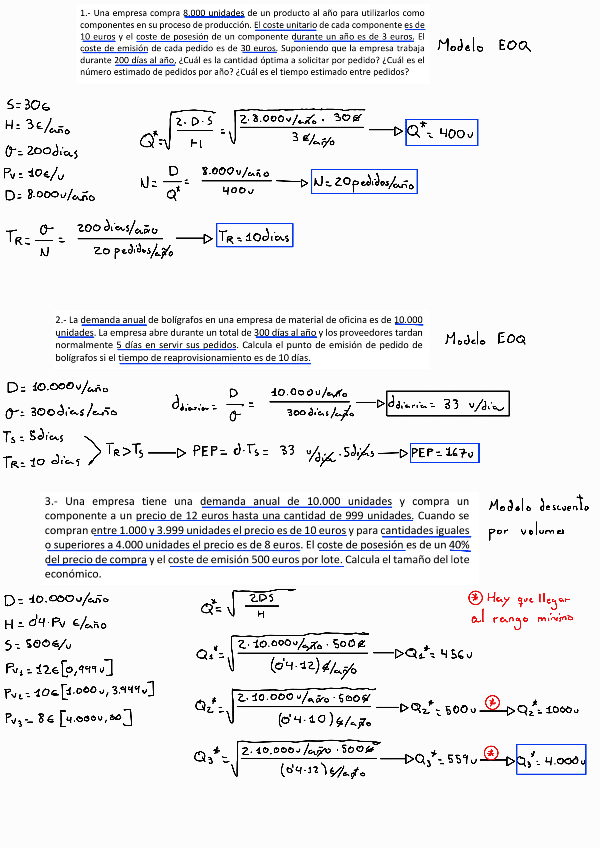 1.- Una empresa compra 8.000 unidades de un producto al año para utilizarlos como
componentes en su proceso de producción. El coste unitario de cada componente es de
10 euros y el coste de posesión de un componente durante un año es de 3 euros. El
coste de emisión de cada pedido es de 30 euros. Suponiendo que la empresa trabaja
durante 200 días al año, ¿Cuál es la cantidad óptima a solicitar por pedido? ¿Cuál es el
número estimado de pedidos por año? ¿Cuál es el tiempo estimado entre pedidos?
Modelo EOQ
S=30€
H= 3€/año
σ=200días
Pv= 10€/u
D= 8.000u/año
Q*=√(2·D·S/H)=√(2·8.000u/año · 30€/3 €/año) → Q*= 400u
N= D/Q* = 8.000u/año/400u → N=20pedidos/año
TR= σ/N = 200días/año/20 pedidos/año → TR=10días
2.- La demanda anual de bolígrafos en una empresa de material de oficina es de 10.000
unidades. La empresa abre durante un total de 300 días al año y los proveedores tardan
normalmente 5 días en servir sus pedidos. Calcula el punto de emisión de pedido de
bolígrafos si el tiempo de reaprovisionamiento es de 10 días.
Modelo EOQ
D= 10.000u/año
σ=300días/año
Ts= 5días
TR= 10 días
ddiaria= D/σ = 10.000u/año/300días/año → ddiaria= 33 u/día
TR>Ts → PEP= d·Ts= 33 u/día·5días → PEP=167u
3.- Una empresa tiene una demanda anual de 10.000 unidades y compra un
componente a un precio de 12 euros hasta una cantidad de 999 unidades. Cuando se
compran entre 1.000 y 3.999 unidades el precio es de 10 euros y para cantidades iguales
o superiores a 4.000 unidades el precio es de 8 euros. El coste de posesión es de un 40%
del precio de compra y el coste de emisión 500 euros por lote. Calcula el tamaño del lote
económico.
Modelo descuento
por volumen
D= 10.000u/año
H= 0'4·Pv €/año
S= 500€/u
Pv1= 12€[0,999u]
Pv2= 10€[1.000u, 3.999u]
Pv3= 8€[4.000u,∞]
Q*=√(2DS/H)
⊛ Hay que llegar
al rango mínimo
Q1*=√(2·10.000u/año·500€/(0'4·12)€/año) → Q1*= 456u
Q2*=√(2·10.000u/año·500€/(0'4·10)€/año) → Q2*= 500u ⊛→ Q2*= 1000u
Q3*=√(2·10.000u/año·500€/(0'4·12)€/año) → Q3*= 559u ⊛→ Q3*= 4.000u